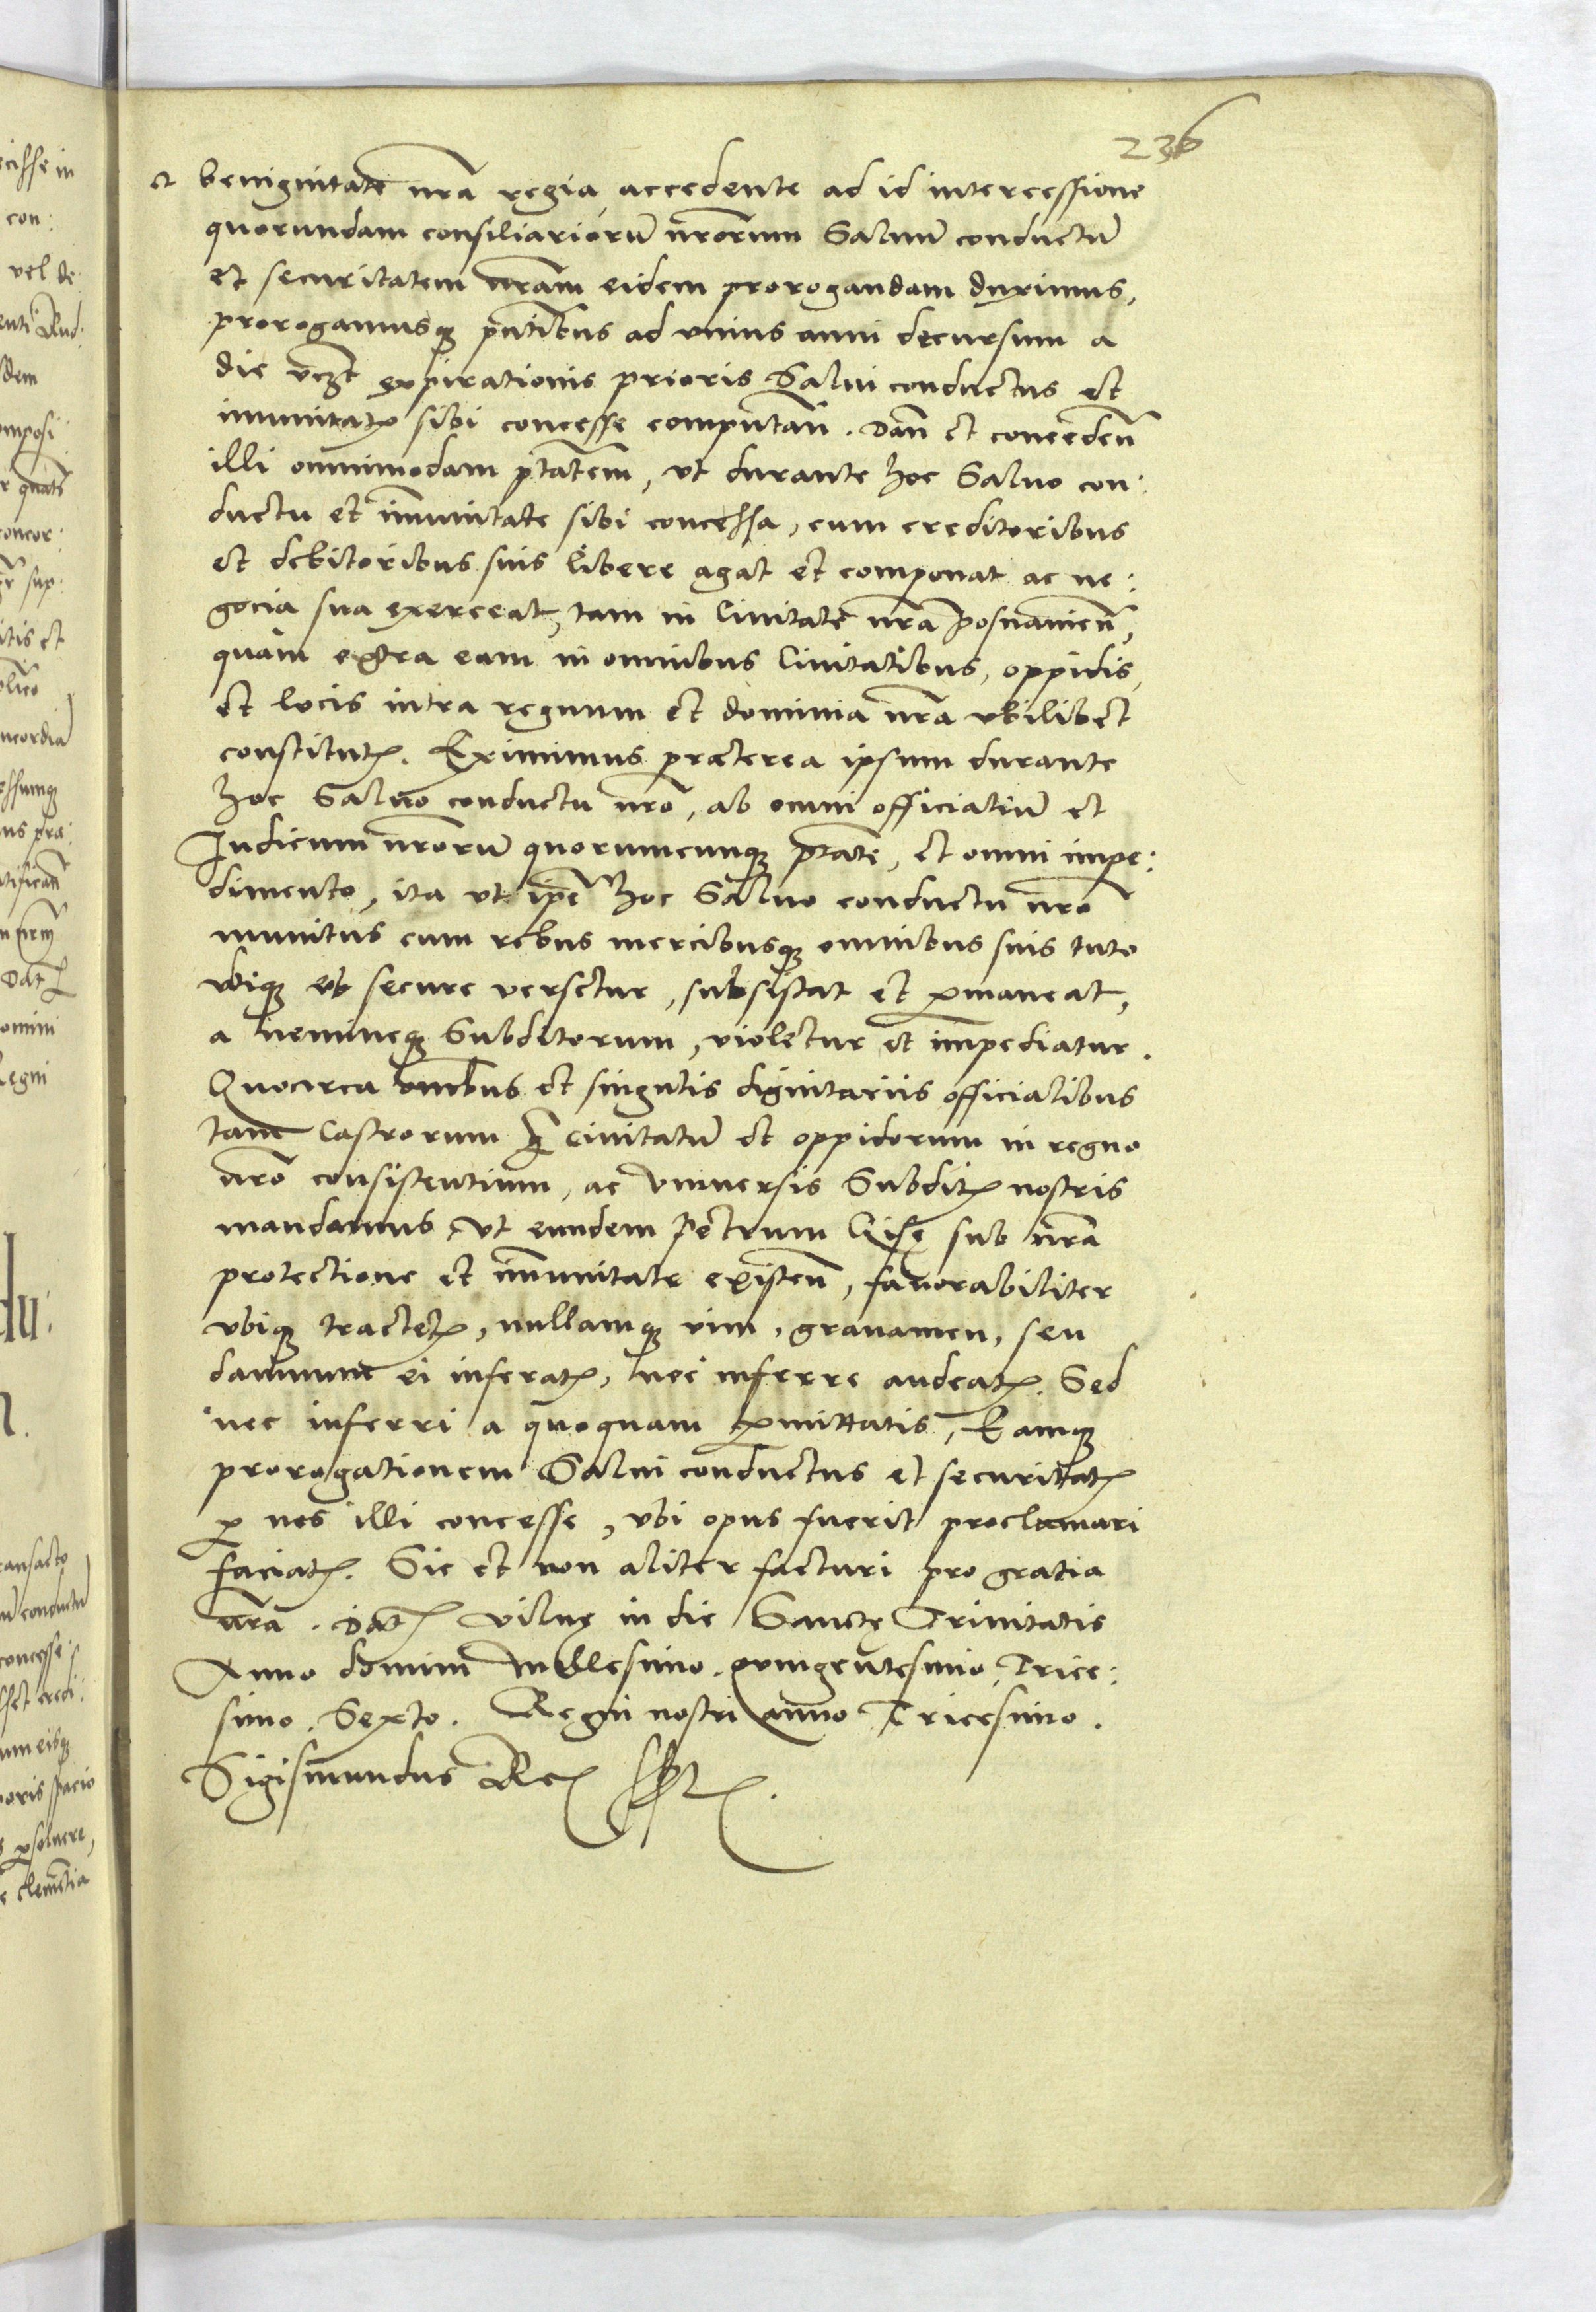 236
et benignitate nrā regia accedente ad id intercessione
quorundam consiliariorū nrorum Saluū conductū
et securitatem nrām eidem prorogandam duximus,
prorogamusq pntibus ad vnius anni decursum a
die vczt expirationis prioris Salui conductus et
imunitatꝭ sibi concesse computañ. Dañ et conceden̄
illi omnimodam ptatem, vt durante hoc Saluo con:
ductu et im̄unitate sibi concessa, cum creditoribus
et debitoribus suis libere agat et componat ac ne:
gocia sua exerceat, tam in Ciuitate nrā Posnanien̄,
quam extra eam in omnibus Ciuitatibus, oppidis,
et locis intra regnum et dominia nrā vbilibet
constitutꝭ. Eximimus præterea ipsum durante
hoc Saluo conductu nrō, ab omni officialiū et
Judicum nrorū quorumcunq ptate, et omni impe:
dimento, ita vt ipe hoc Saluo conductu nrō
munitus cum rebus mercibusq omnibus suis tuto
vbiq et secure versetur, subsistat et ꝑmaneat,
a nemineq Subditorum, violetur et impediatur.
Quocirca omibus et singulis dignitariis officialibus
tam Castrorum q̃ Ciuitatū et oppidorum in regno
nrō consistentium, ac vniuersis Subditꝭ nostris
mandamus, vt eundem Petrum Gise sub nrā
protectione et im̄unitate existen̄, fauorabiliter
vbiq tractetꝭ, nullamq vim, grauamen, seu
damnum ei inferatꝭ, nec inferre audeatꝭ. Sed
nec inferri a quoquam ꝑmittatis, Eamq
prorogationem Salui conductus et securitatꝭ
ꝑ nos illi concesse, vbi opus fuerit proclamari
faciatꝭ. Sic et non aliter facturi pro gratia
nrā. Datꝭ Vilnę in die Sanctę Trinitatis
Anno domini Millesimo. quingentesimo, Trice:
simo. Sexto. Regni nostri anno Tricesimo.
Sigismundus Rex